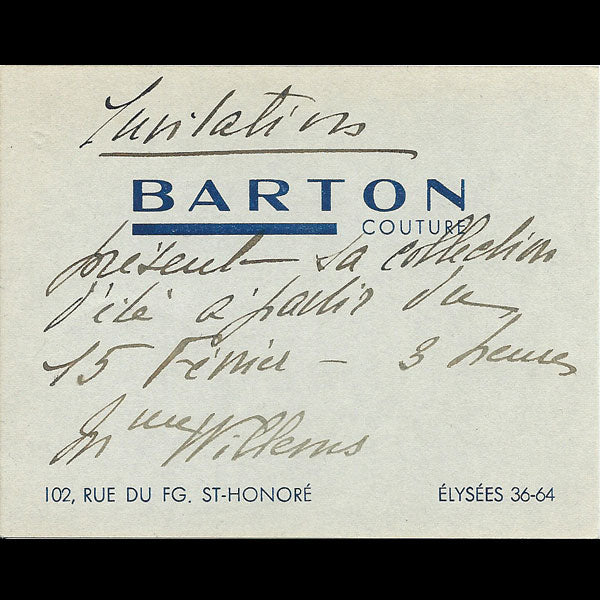 Invitations
BARTON
COUTURE
présente sa collection
d'été à partir du
15 Février - 3 heures
Mme Willems
102, RUE DU FG. ST-HONORÉ
ÉLYSÉES 36-64